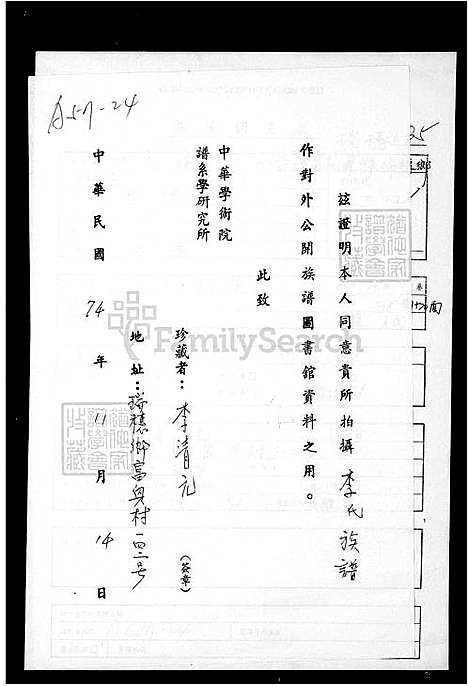 A57-24
茲證明本人同意貴所拍攝李氏族譜
作對外公開族譜圖書館資料之用。
此致
中華學術院
譜系學研究所
珍藏者：李清元（簽章）
地址：瑞穗鄉富興村一四二號
中華民國74年11月14日
35
鄉
卷
FamilySearch